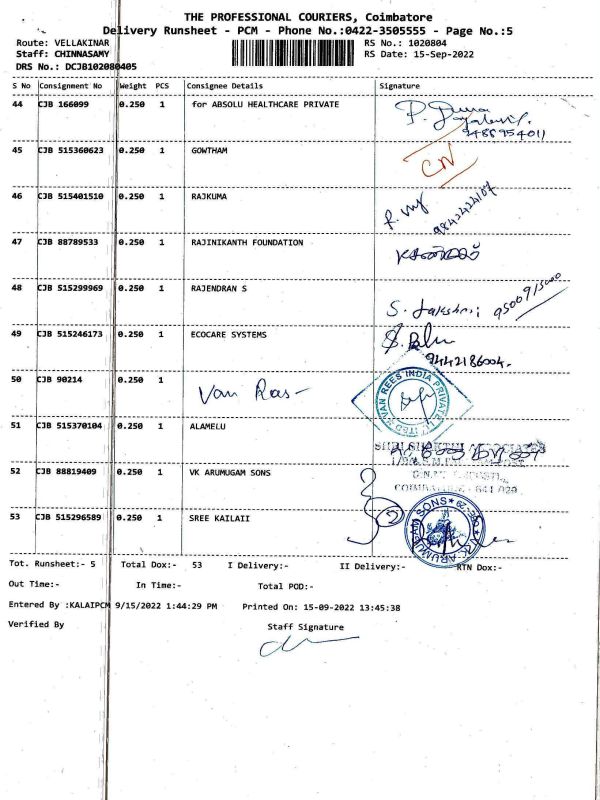 THE PROFESSIONAL COURIERS, Coimbatore
Delivery Runsheet - PCM - Phone No.:0422-3505555 - Page No.:5
Route: VELLAKINAR RS No.: 1020804
Staff: CHINNASAMY RS Date: 15-Sep-2022
DRS No.: DCJB102080405
S No Consignment No Weight PCS Consignee Details Signature
44 CJB 166099 0.250 1 for ABSOLU HEALTHCARE PRIVATE
9486954011
45 CJB 515360623 0.250 1 GOWTHAM CN
46 CJB 515401510 0.250 1 RAJKUMA
9842424107
47 CJB 88789533 0.250 1 RAJINIKANTH FOUNDATION
48 CJB 515299969 0.250 1 RAJENDRAN S S.
49 CJB 515246173 0.250 1 ECOCARE SYSTEMS
9442186004.
50 CJB 90214 0.250 1 Van Ras- VAN REES INDIA PRIVATE LIMITED
51 CJB 515370104 0.250 1 ALAMELU
SHRI SHAKTHI ASSOCIATES
52 CJB 88819409 0.250 1 VK ARUMUGAM SONS
COIMBATORE - 641 029
53 CJB 515296589 0.250 1 SREE KAILAII V.K. ARUMUGAM SONS
Tot. Runsheet:- 5 Total Dox:- 53 I Delivery:- II Delivery:- RTN Dox:-
Out Time:- In Time:- Total POD:-
Entered By :KALAIPCM 9/15/2022 1:44:29 PM Printed On: 15-09-2022 13:45:38
Verified By Staff Signature